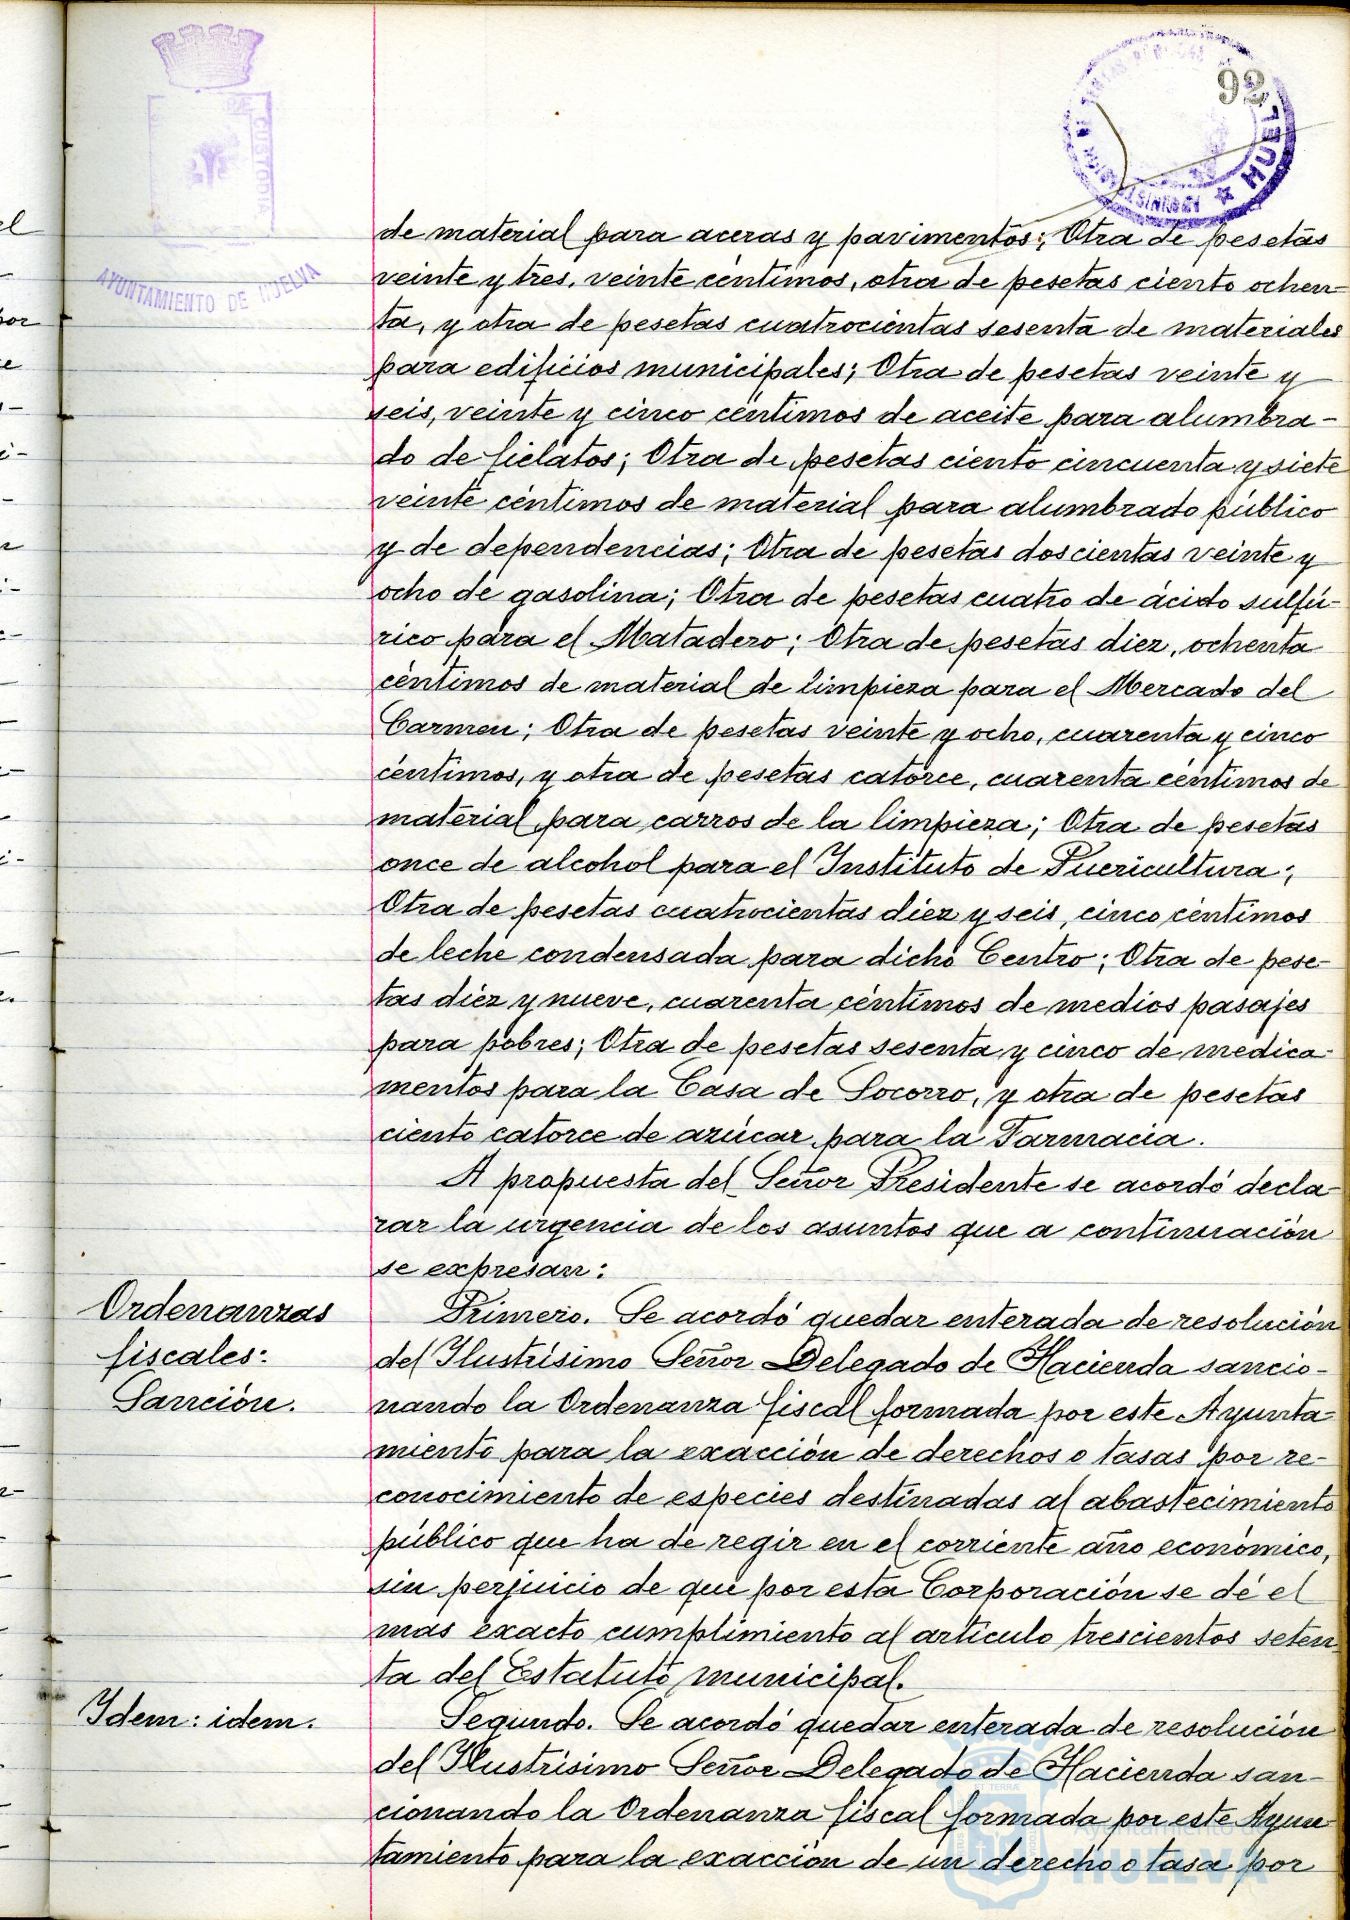 92
HUELVA
CUSTODIA
AYUNTAMIENTO DE HUELVA
de material para aceras y pavimentos; Otra de pesetas
veinte y tres, veinte céntimos, otra de pesetas ciento ochen-
ta, y otra de pesetas cuatrocientas sesenta de materiales
para edificios municipales; Otra de pesetas veinte y
seis, veinte y cinco céntimos de aceite para alumbra-
do de fielatos; Otra de pesetas ciento cincuenta y siete
veinte céntimos de material para alumbrado público
y de dependencias; Otra de pesetas doscientas veinte y
ocho de gasolina; Otra de pesetas cuatro de ácido sulfú-
rico para el Matadero; Otra de pesetas diez, ochenta
céntimos de material de limpieza para el Mercado del
Carmen; Otra de pesetas veinte y ocho, cuarenta y cinco
céntimos, y otra de pesetas catorce, cuarenta céntimos de
material para carros de la limpieza; Otra de pesetas
once de alcohol para el Instituto de Puericultura;
Otra de pesetas cuatrocientas diez y seis, cinco céntimos
de leche condensada para dicho Centro; Otra de pese-
tas diez y nueve, cuarenta céntimos de medios pasajes
para pobres; Otra de pesetas sesenta y cinco de medica-
mentos para la Casa de Socorro, y otra de pesetas
ciento catorce de azúcar para la Farmacia.
A propuesta del Señor Presidente se acordó decla-
rar la urgencia de los asuntos que a continuación
se expresan:
Ordenanzas
fiscales:
Sanción.
Primero. Se acordó quedar enterada de resolución
del Ilustrísimo Señor Delegado de Hacienda sancio-
nando la Ordenanza fiscal formada por este Ayunta-
miento para la exacción de derechos o tasas por re-
conocimiento de especies destinadas al abastecimiento
público que ha de regir en el corriente año económico,
sin perjuicio de que por esta Corporación se dé el
mas exacto cumplimiento al artículo trescientos seten-
ta del Estatuto municipal.
Idem: idem.
Segundo. Se acordó quedar enterada de resolución
del Ilustrísimo Señor Delegado de Hacienda san-
cionando la Ordenanza fiscal formada por este Ayun-
tamiento para la exacción de un derecho o tasa por
Ayuntamiento de
HUELVA